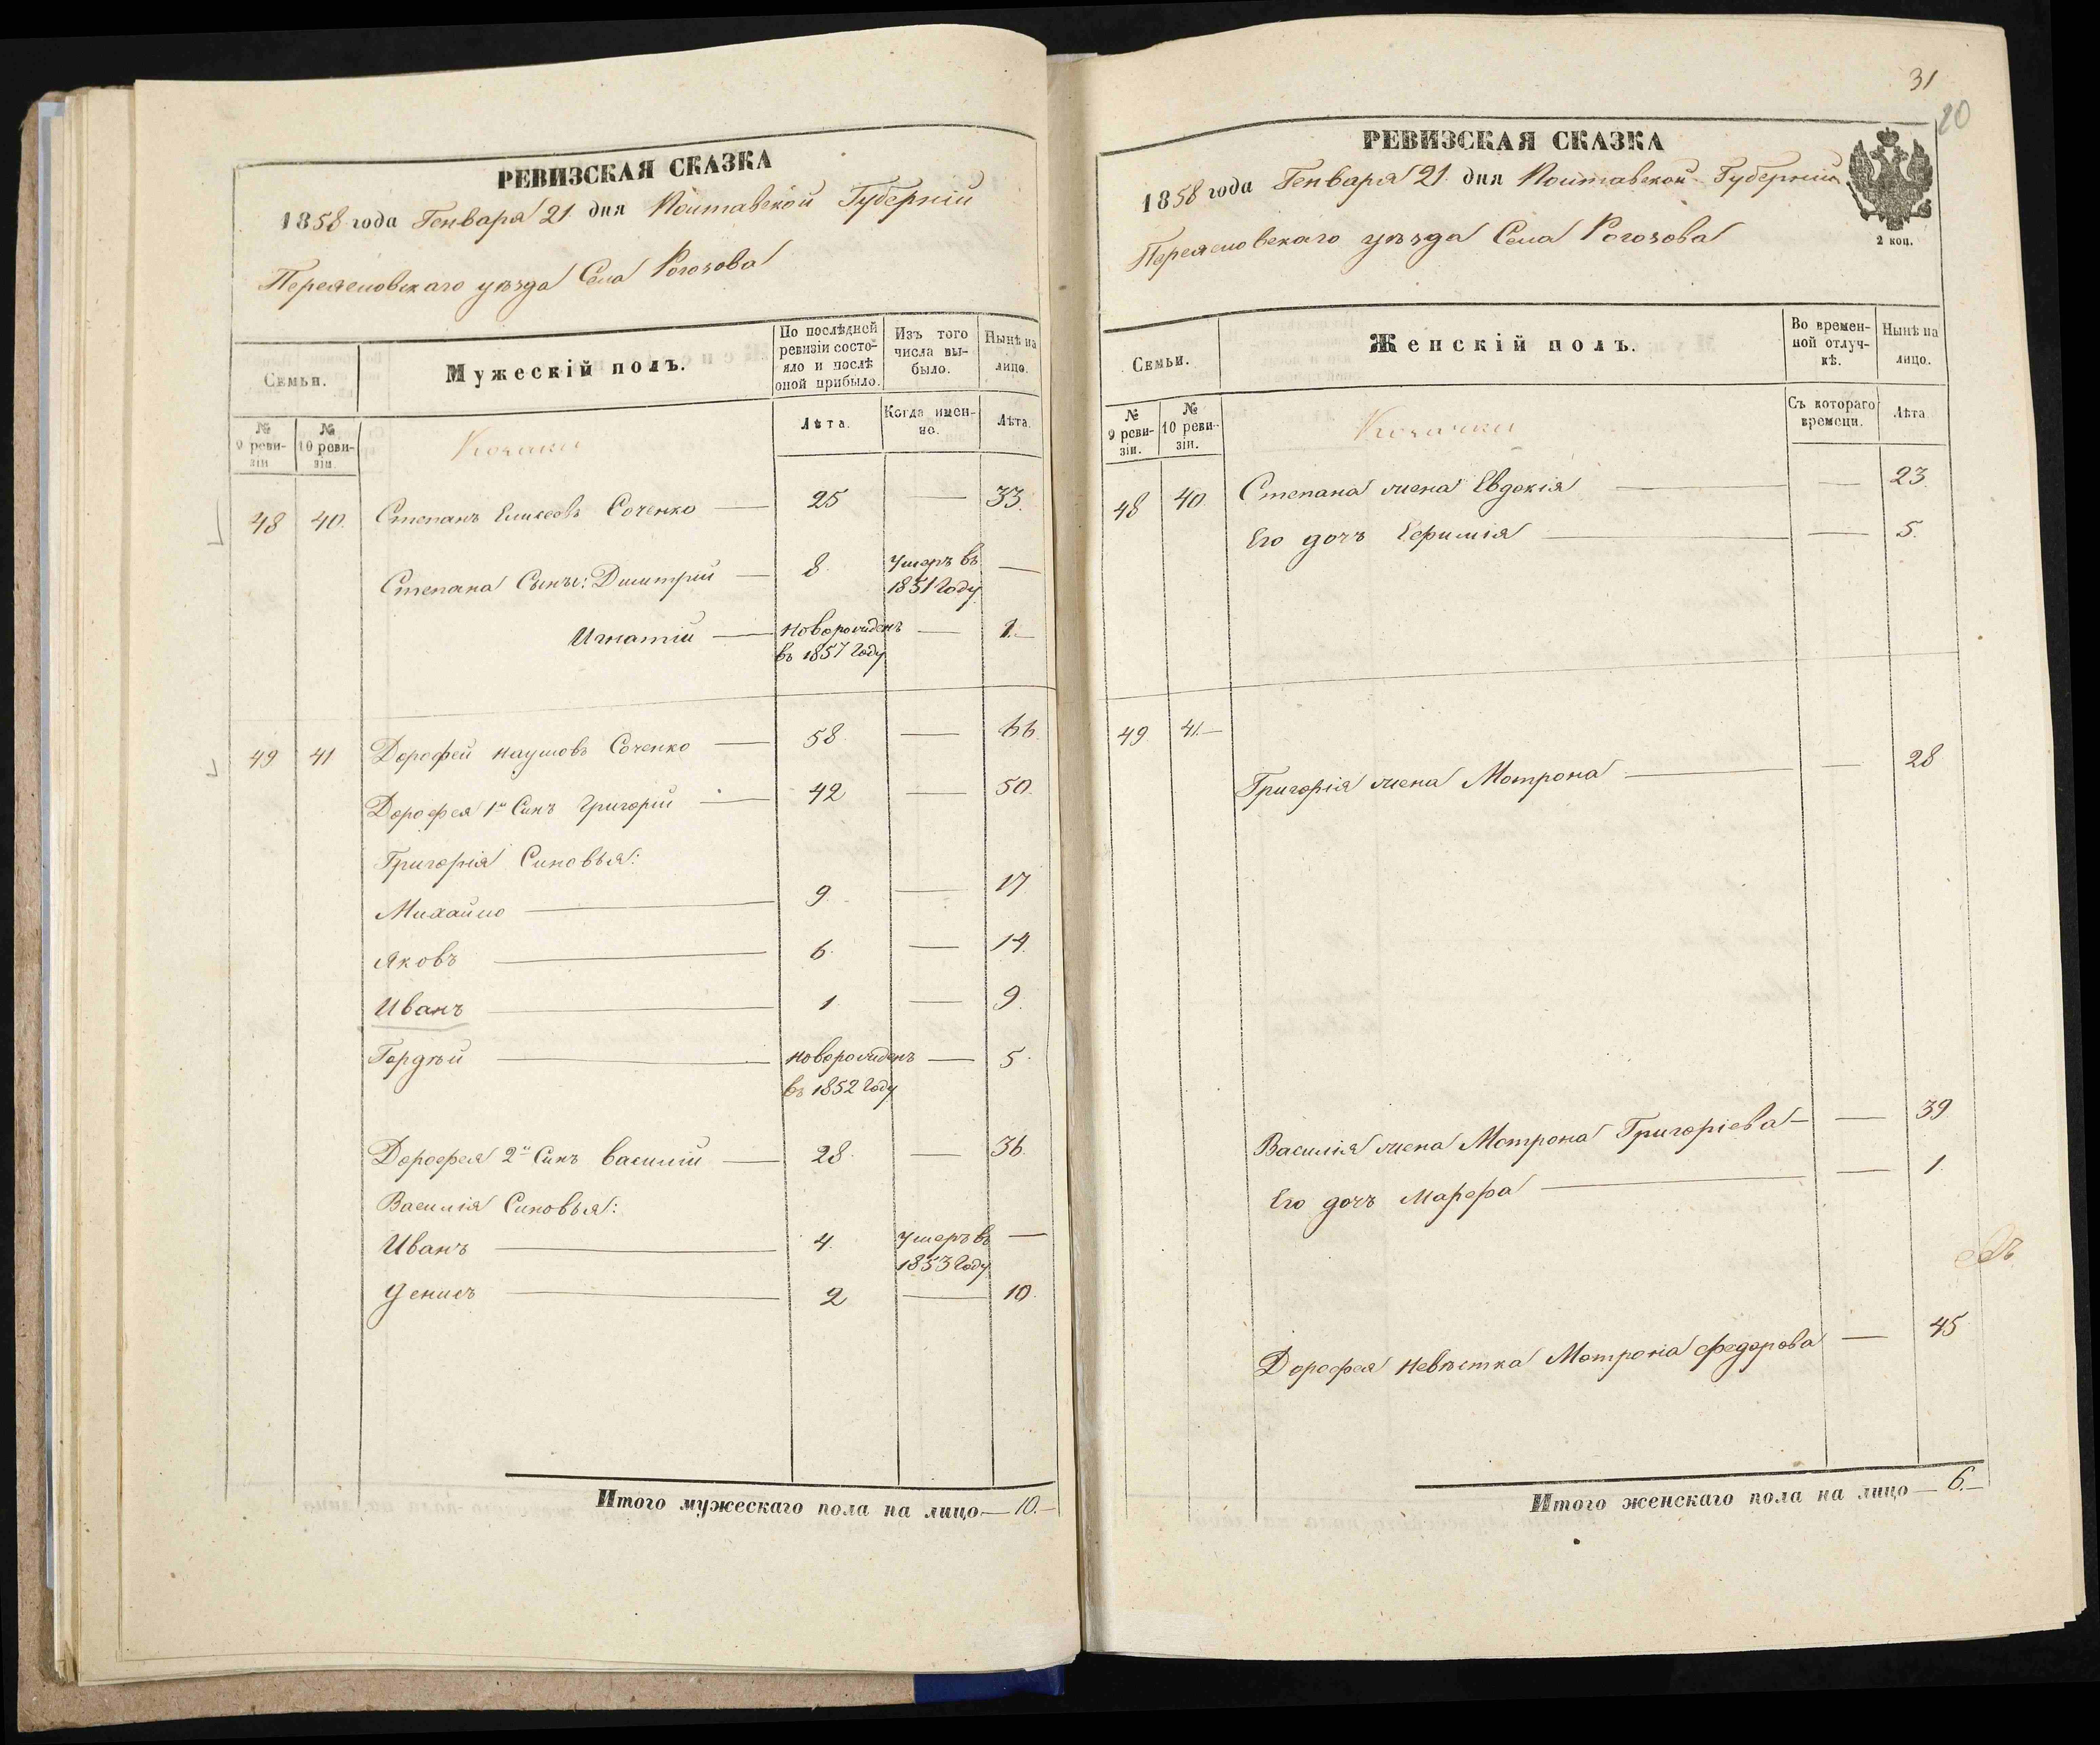 РЕВИЗСКАЯ СКАЗКА
1858 года Генваря 21 дня Полтавской Губерніи
Переяславскаго уѣзда Села Рогозова
Семьи.
Мужескій полъ.
По послѣдней ревизіи состояло и послѣ оной прибыло.
Изъ того числа выбыло.
Нынѣ на лицо.
№ 9 ревизіи
№ 10 ревизіи.
Козаки
Лѣта.
Когда именно.
Лѣта.
48 40. Степанъ Елисеевъ Соченко — 25 — 33.
Степана Сынъ: Дмитрій — 8. Умеръ въ —
1851 Году
Игнатій — Новорожденъ — 1.
въ 1857 Году
49 41 Дорофей Наумовъ Соченко — 58 — 66.
Дорофея 1й Синъ Григорій — 42 — 50.
Григорія Синовья:
Михайло — 9. — 17.
Яковъ — 6. — 14.
Иванъ — 1 — 9.
Гордѣй — Новорожденъ — 5.
въ 1852 Году
Дорофея 2й Синъ Василій — 28. — 36.
Василія Синовья:
Иванъ — 4. Умеръ въ —
1853 Году
Денисъ — 2 — 10.
Итого мужескаго пола на лицо — 10. —
31
20
РЕВИЗСКАЯ СКАЗКА
2 коп.
1858 года Генваря 21 дня Полтавской Губерніи
Переясловскаго уѣзда Села Рогозова
Семьи.
Женскій полъ.
Во временной отлучкѣ.
Нынѣ на лицо.
№ 9 ревизіи.
№ 10 ревизіи.
Козачки
Съ котораго времени.
Лѣта.
48 40. Степана жена Евдокія — — 23.
Его дочъ Ефимія — — 5.
49 41. —
Григорія жена Мотрона — — 28
Василія жена Мотрона Григоріева — — 39.
Его дочъ Марфа — — 1.
Дорофея невѣстка Мотрона Федорова — 45
Итого женскаго пола на лицо — 6. —